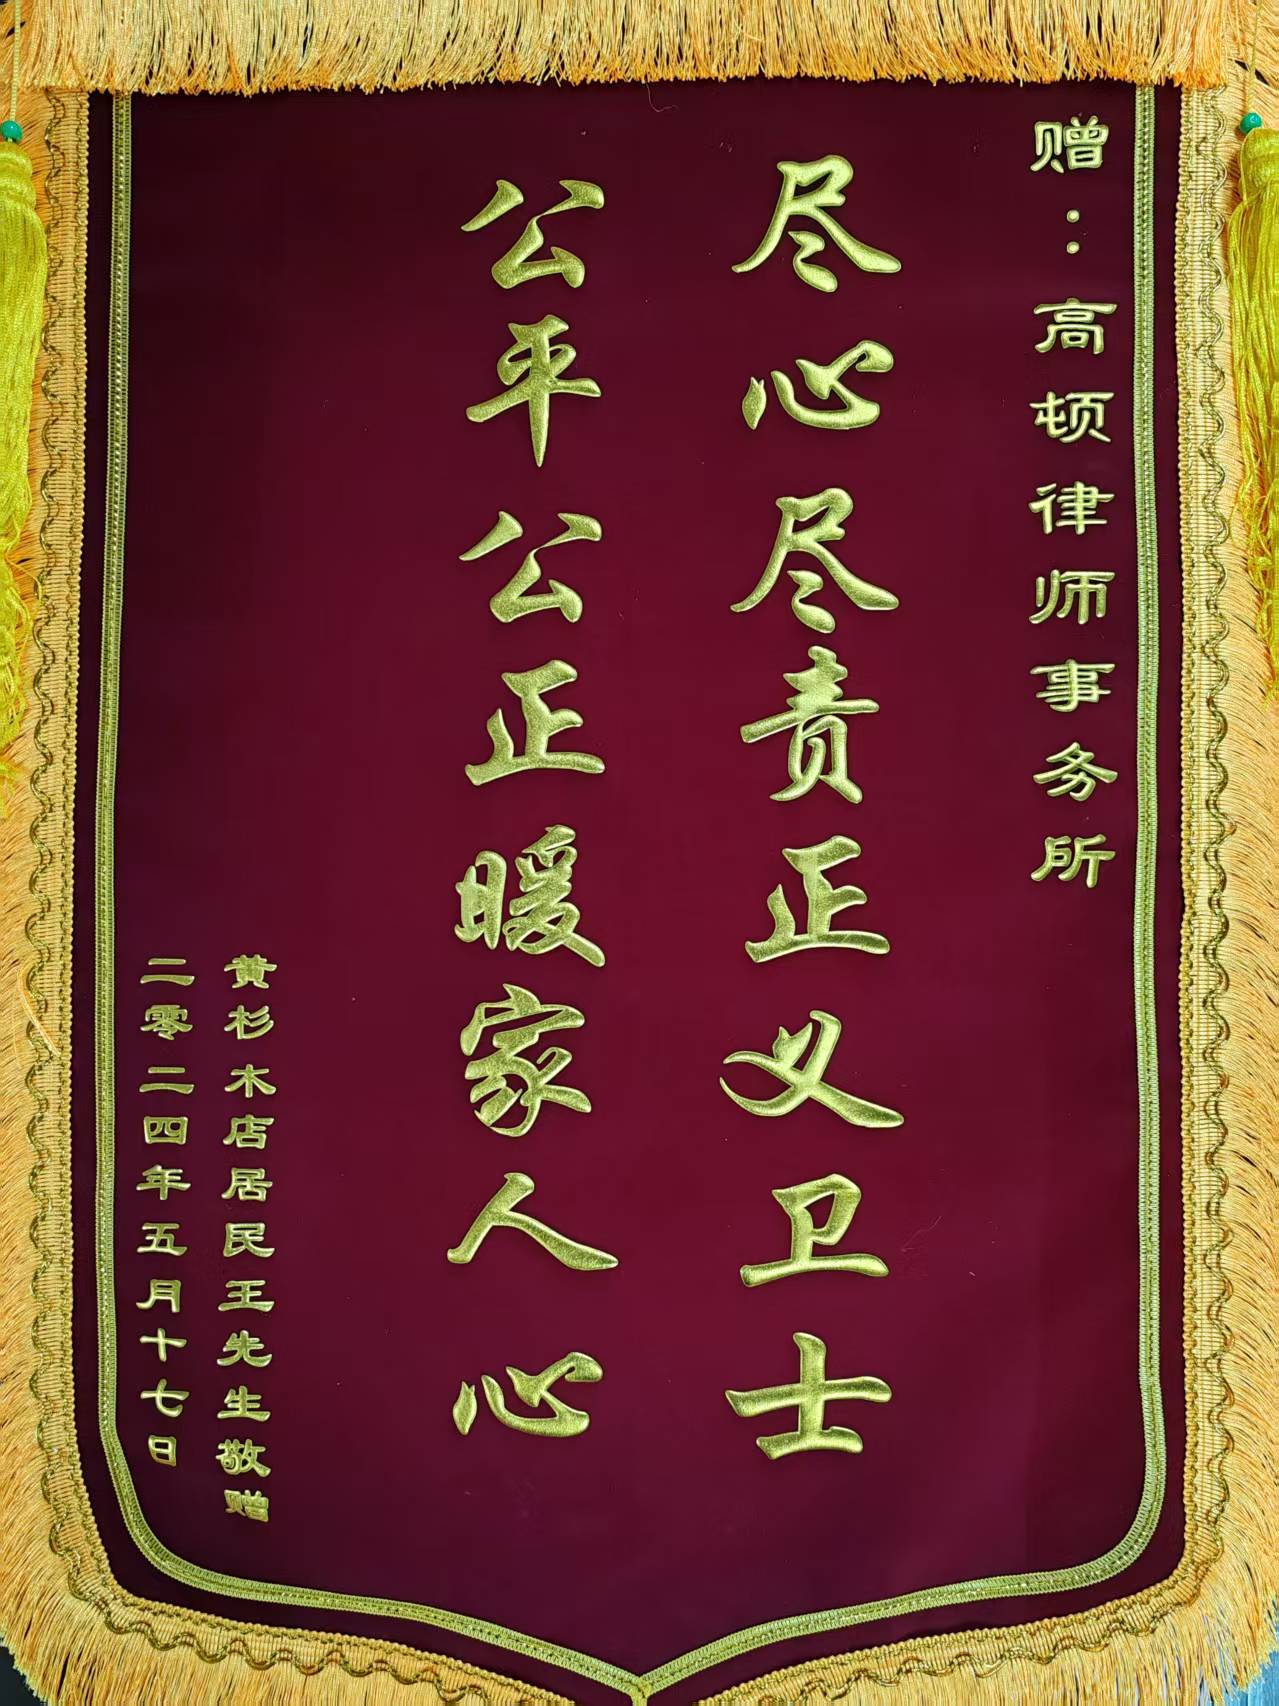 赠：高顿律师事务所
尽心尽责正义卫士
公平公正暖家人心
黄杉木店居民王先生敬赠
二零二四年五月十七日